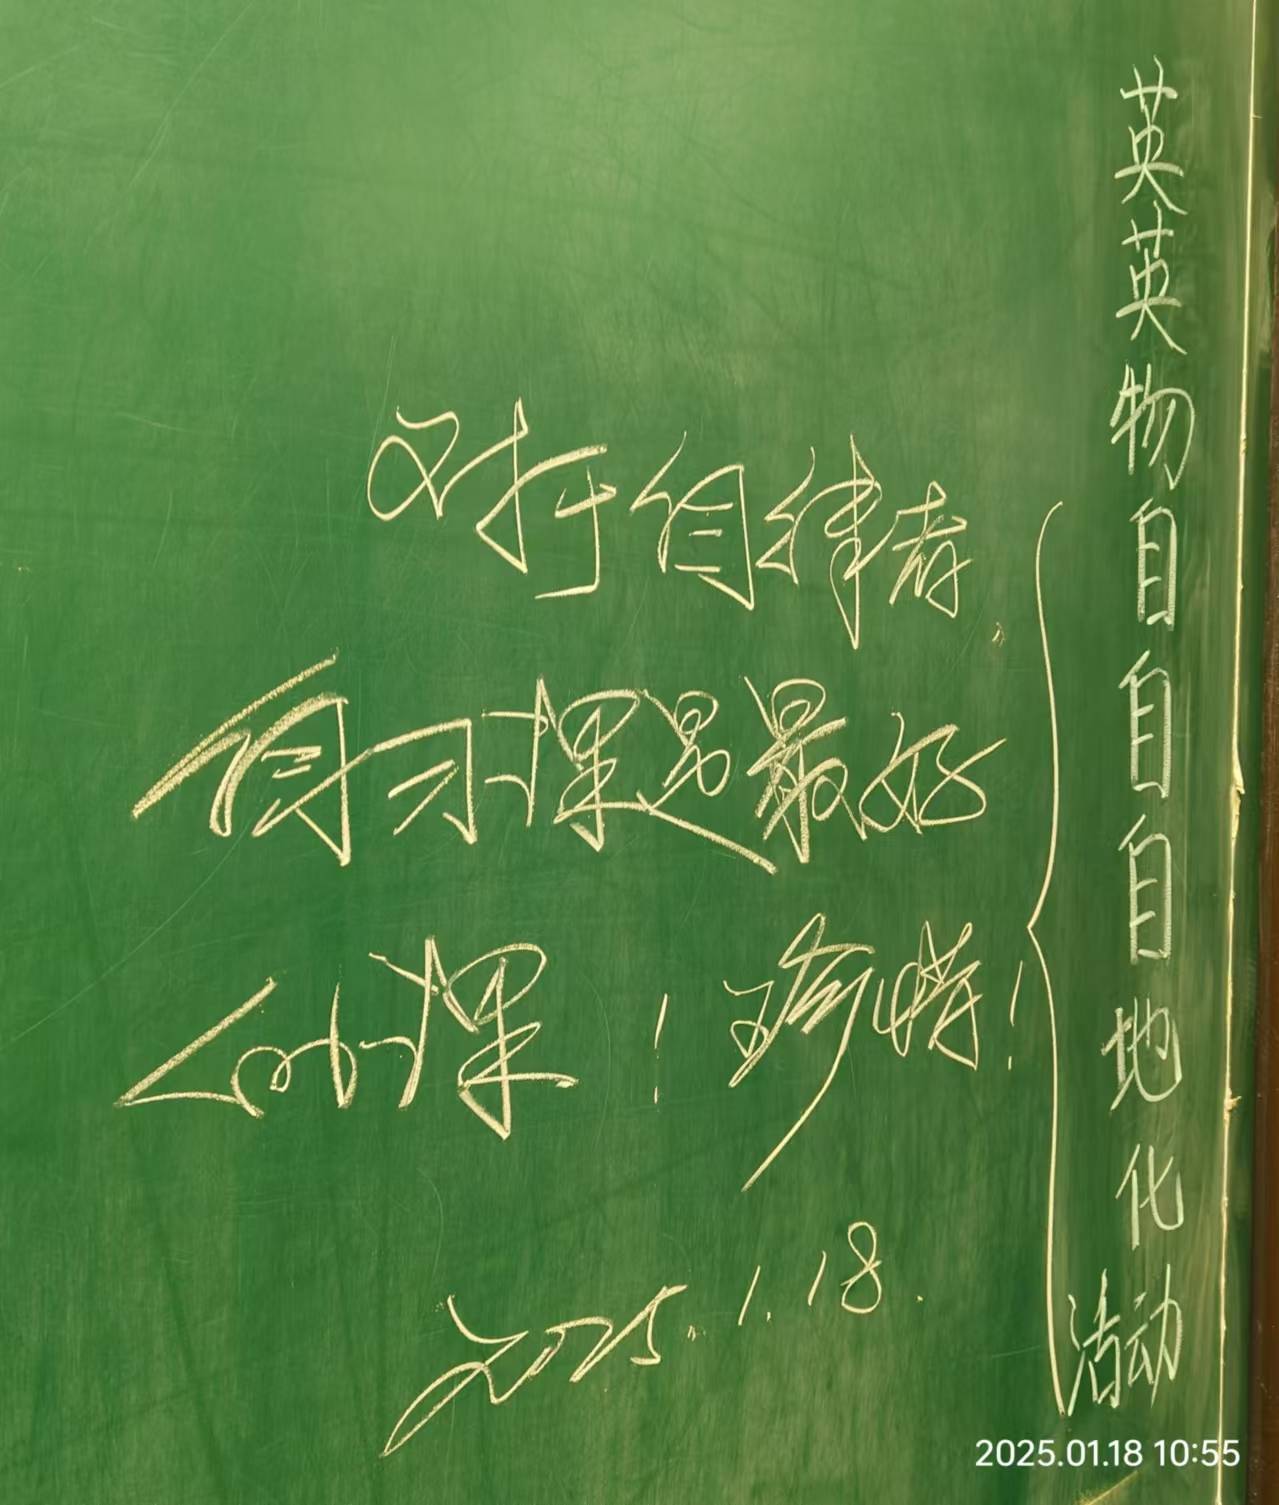 对于自律者
自习课是最好
的课！珍惜！
2025.1.18.
英
英
物
自
自
自
地
化
活动
2025.01.18 10:55